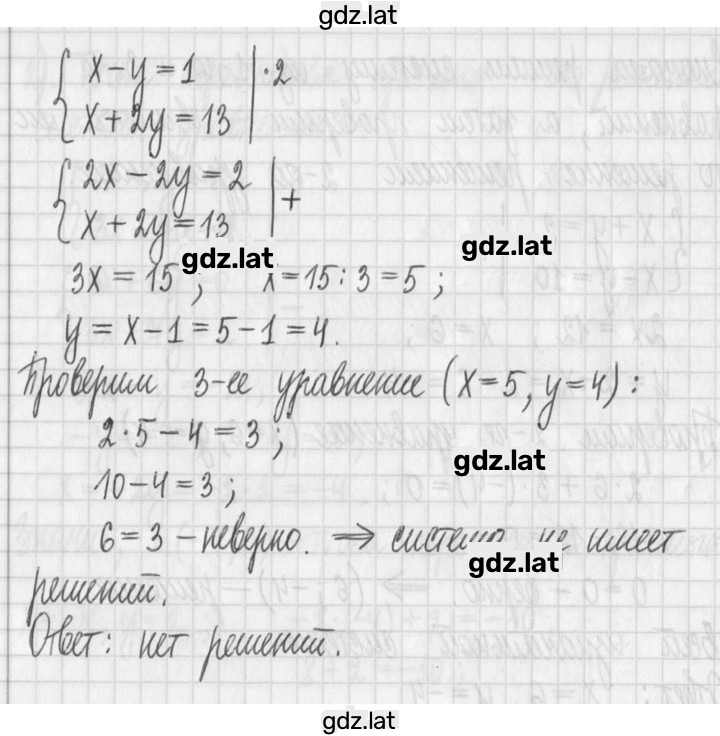 gdz.lat
x - y = 1 | · 2
x + 2y = 13
2x - 2y = 2 | +
x + 2y = 13
gdz.lat
gdz.lat
3x = 15 ; x = 15 : 3 = 5 ;
y = x - 1 = 5 - 1 = 4.
Проверим 3-ее уравнение (x = 5, y = 4) :
2 · 5 - 4 = 3 ;
gdz.lat
10 - 4 = 3 ;
6 = 3 - неверно. ⇒ система не имеет
gdz.lat
решений.
Ответ: нет решений.
gdz.lat